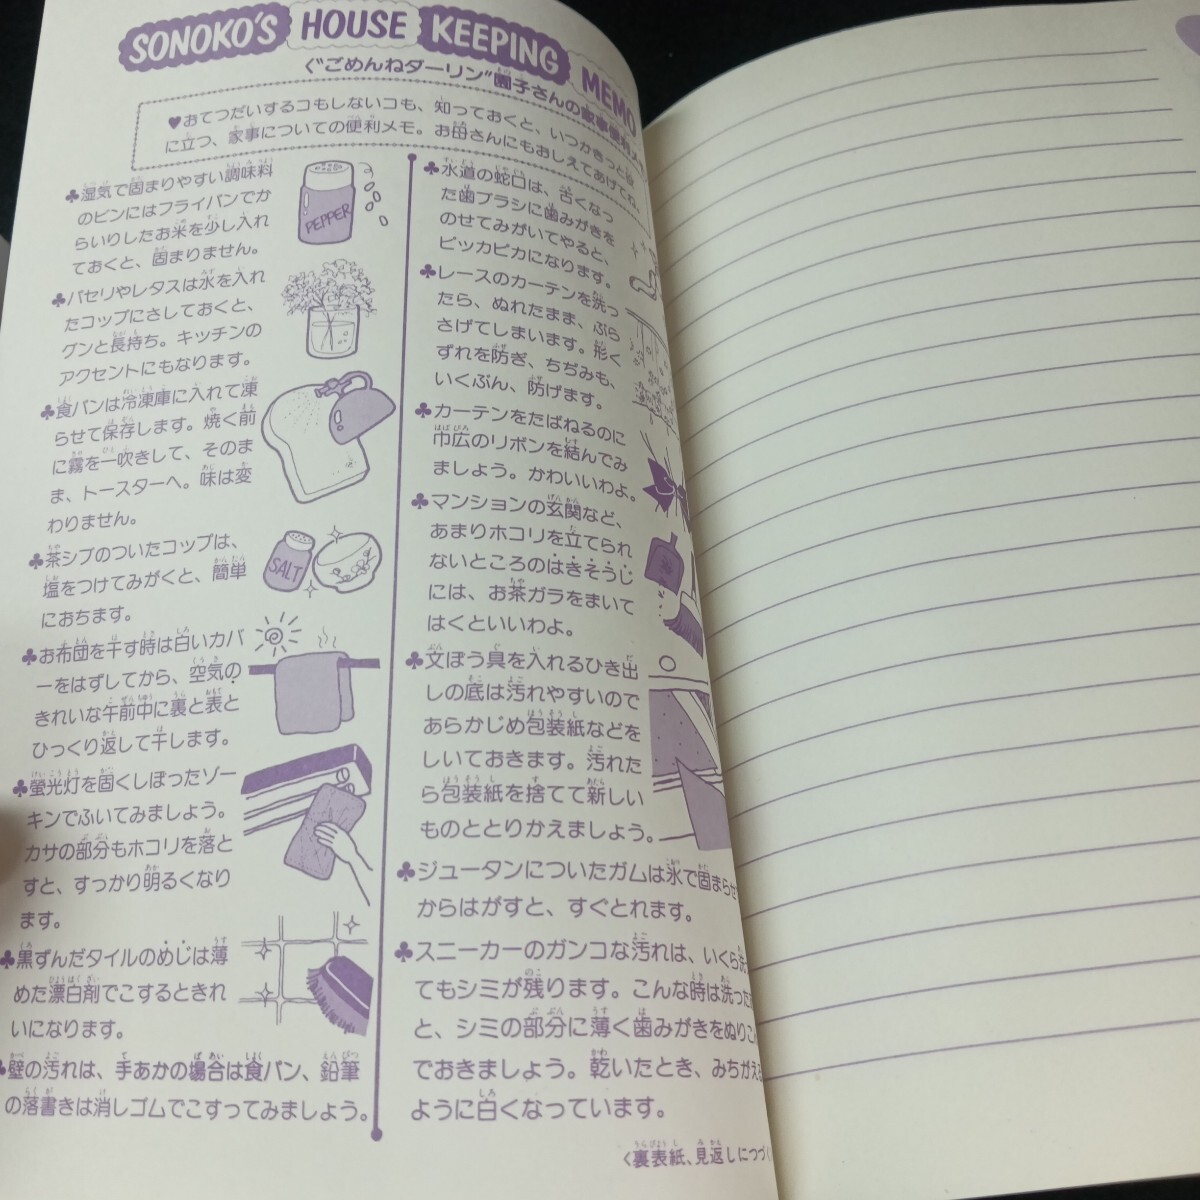 SONOKO'S HOUSE KEEPING MEMO
〝ごめんねダーリン〟園子さんの家事便利メ
♥おてつだいするコもしないコも、知っておくと、いつかきっと役
に立つ、家事についての便利メモ。お母さんにもおしえてあげてね。
♣湿気で固まりやすい調味料
のビンにはフライパンでか
らいりしたお米を少し入れ
ておくと、固まりません。
PEPPER
♣パセリやレタスは水を入れ
たコップにさしておくと、
グンと長持ち。キッチンの
アクセントにもなります。
♣食パンは冷凍庫に入れて凍
らせて保存します。焼く前
に霧を一吹きして、そのま
ま、トースターへ。味は変
わりません。
♣茶シブのついたコップは、
塩をつけてみがくと、簡単
におちます。
SALT
♣お布団を干す時は白いカバ
ーをはずしてから、空気の
きれいな午前中に裏と表と
ひっくり返して干します。
♣螢光灯を固くしぼったゾー
キンでふいてみましょう。
カサの部分もホコリを落と
すと、すっかり明るくなり
ます。
♣黒ずんだタイルのめじは薄
めた漂白剤でこするときれ
いになります。
♣壁の汚れは、手あかの場合は食パン、鉛筆
の落書きは消しゴムでこすってみましょう。
♣水道の蛇口は、古くなっ
た歯ブラシに歯みがきを
のせてみがいてやると、
ピッカピカになります。
♣レースのカーテンを洗っ
たら、ぬれたまま、ぶら
さげてしまいます。形く
ずれを防ぎ、ちぢみも、
いくぶん、防げます。
♣カーテンをたばねるのに
巾広のリボンを結んでみ
ましょう。かわいいわよ。
♣マンションの玄関など、
あまりホコリを立てられ
ないところのはきそうじ
には、お茶ガラをまいて
はくといいわよ。
♣文ぼう具を入れるひき出
しの底は汚れやすいので
あらかじめ包装紙などを
しいておきます。汚れた
ら包装紙を捨てて新しい
ものととりかえましょう。
♣ジュータンについたガムは氷で固まらせ
からはがすと、すぐとれます。
♣スニーカーのガンコな汚れは、いくら洗
てもシミが残ります。こんな時は洗った
と、シミの部分に薄く歯みがきをぬりこ
でおきましょう。乾いたとき、みちがえる
ように白くなっています。
〈裏表紙、見返しにつづく